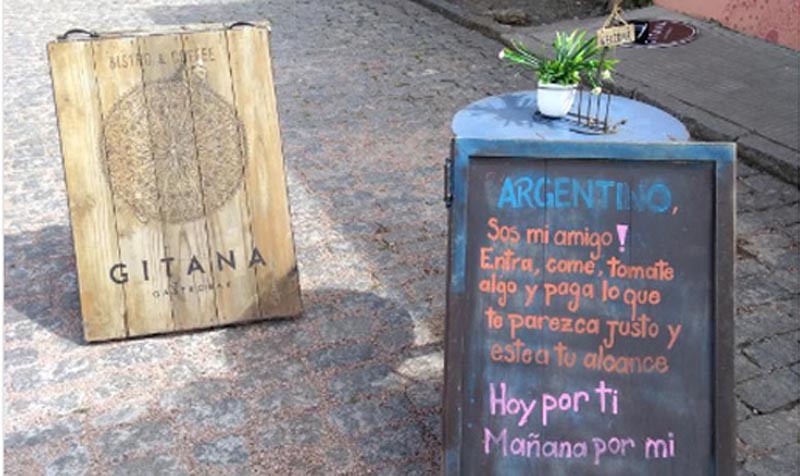 BISTRO & COFFEE
GITANA
GASTROBAR
WELCOME
ARGENTINO,
Sos mi amigo!
Entra, come, tomate
algo y paga lo que
te parezca justo y
este a tu alcance
Hoy por ti
Mañana por mi